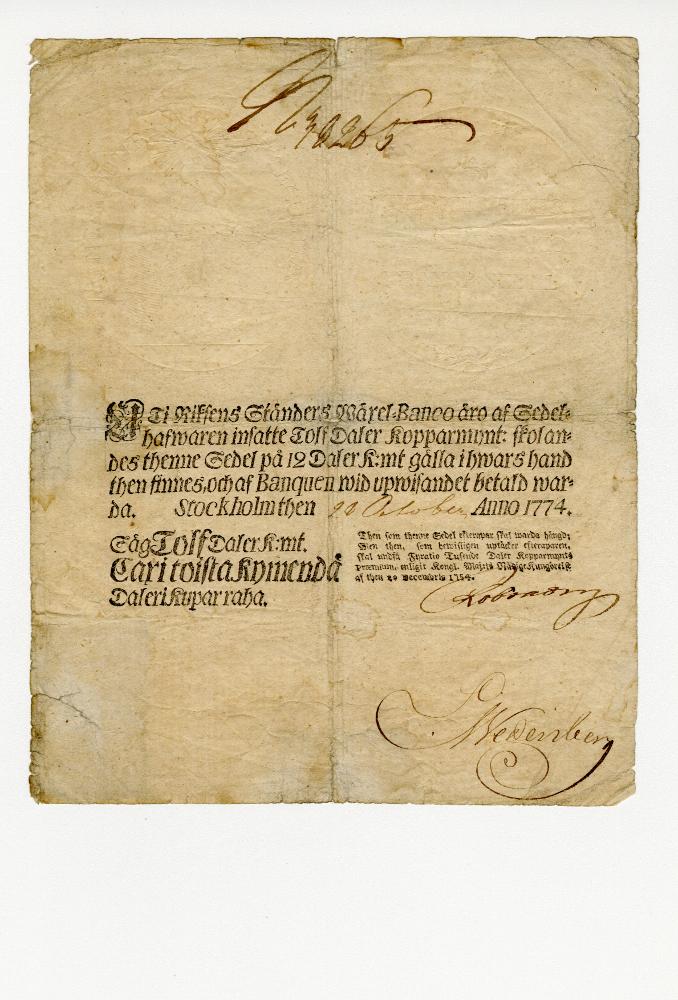 No 70265
UTi Riksens Ständers Wäxel-Banco äro af Sedel-
hafwaren insatte Tolf Daler Kopparmynt: skolan-
des thenne Sedel på 12 Daler K:mt gälla i hwars hand
then finnes, och af Banquen wid upwisandet betald war-
da. Stockholm then October Anno 1774.
Säg Tolf Daler K:mt.
Caxi toista kymendä
Daleri Kupar raha.
Then som thenne Sedel efterapar skal warda hängd;
Men then, som bewisligen uptäcker efteraparen,
skal undfå Fyratio Tusende Daler Kopparmynts
præmium, enligit Kongl. Maj:ts Nådige Kungörelse
af then 29 Decembris 1754.
Wedenberg